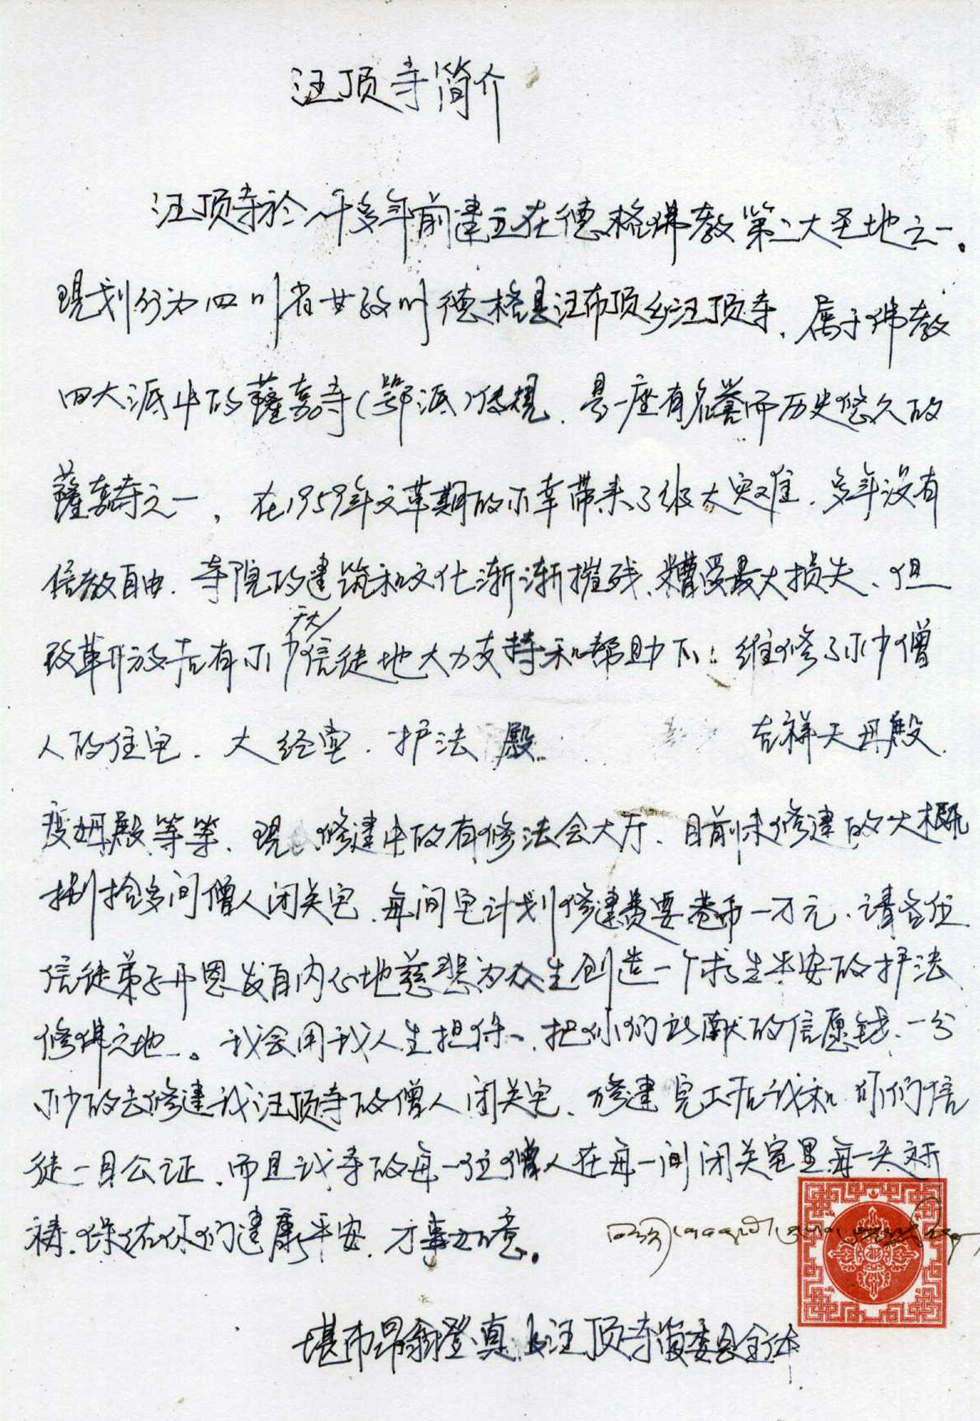 汪顶寺简介
汪顶寺於八千多年前建立在德格佛教第二大圣地之一。
现划分为四川省甘孜州德格县汪布顶乡汪顶寺、属于佛教
四大派中的薩嘉寺(鄂派)传规、是一座有名誉而历史悠久的
薩嘉寺之一，在1959年文革期的不幸带来了很大灾难、多年没有
信教自由、寺院的建筑和文化渐渐摧残、糟受最大损失、但
改革开放后有不少信徒地大力支持和帮助下：维修了不少僧
人的住宅、大经堂、护法殿 吉祥天母殿、
度姆殿等等、现修建中的有修法会大厅、目前未修建的大概
捌拾多间僧人闭关宅、每间宅计划修建费要巷币一万元、请各位
信徒弟子开恩发自内心地慈悲为众生创造一个求生平安的护法
修佛之地。我会用我人生担保、把你们贡献的信愿钱、一分
不少的去修建我汪顶寺的僧人闭关宅、修建完工后我和你们信
徒一目公证、而且我寺的每一位僧人在每一间闭关宅里每一天祈
祷、保佑你们健康平安、万事如意。
堪布昂翁登真及汪顶寺管委员全体